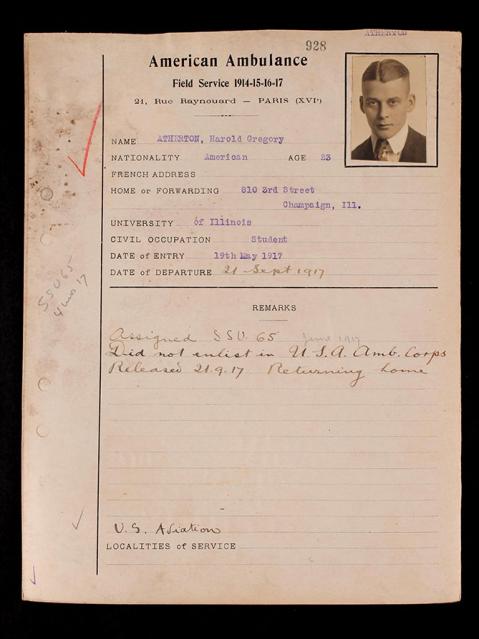 ATHERTON
928
American Ambulance
Field Service 1914-15-16-17
21, Rue Raynouard — PARIS (XVIe)
NAME ATHERTON, Harold Gregory
NATIONALITY American AGE 23
FRENCH ADDRESS
HOME or FORWARDING 810 3rd Street
Champaign, Ill.
UNIVERSITY of Illinois
CIVIL OCCUPATION Student
DATE of ENTRY 19th May 1917
DATE of DEPARTURE 21 Sept 1917
SSU 65
17
REMARKS
Assigned SSU 65 June 1917
Did not enlist in U.S.A. Amb. Corps
Released 21.9.17 Returning home
U.S. Aviation
LOCALITIES of SERVICE